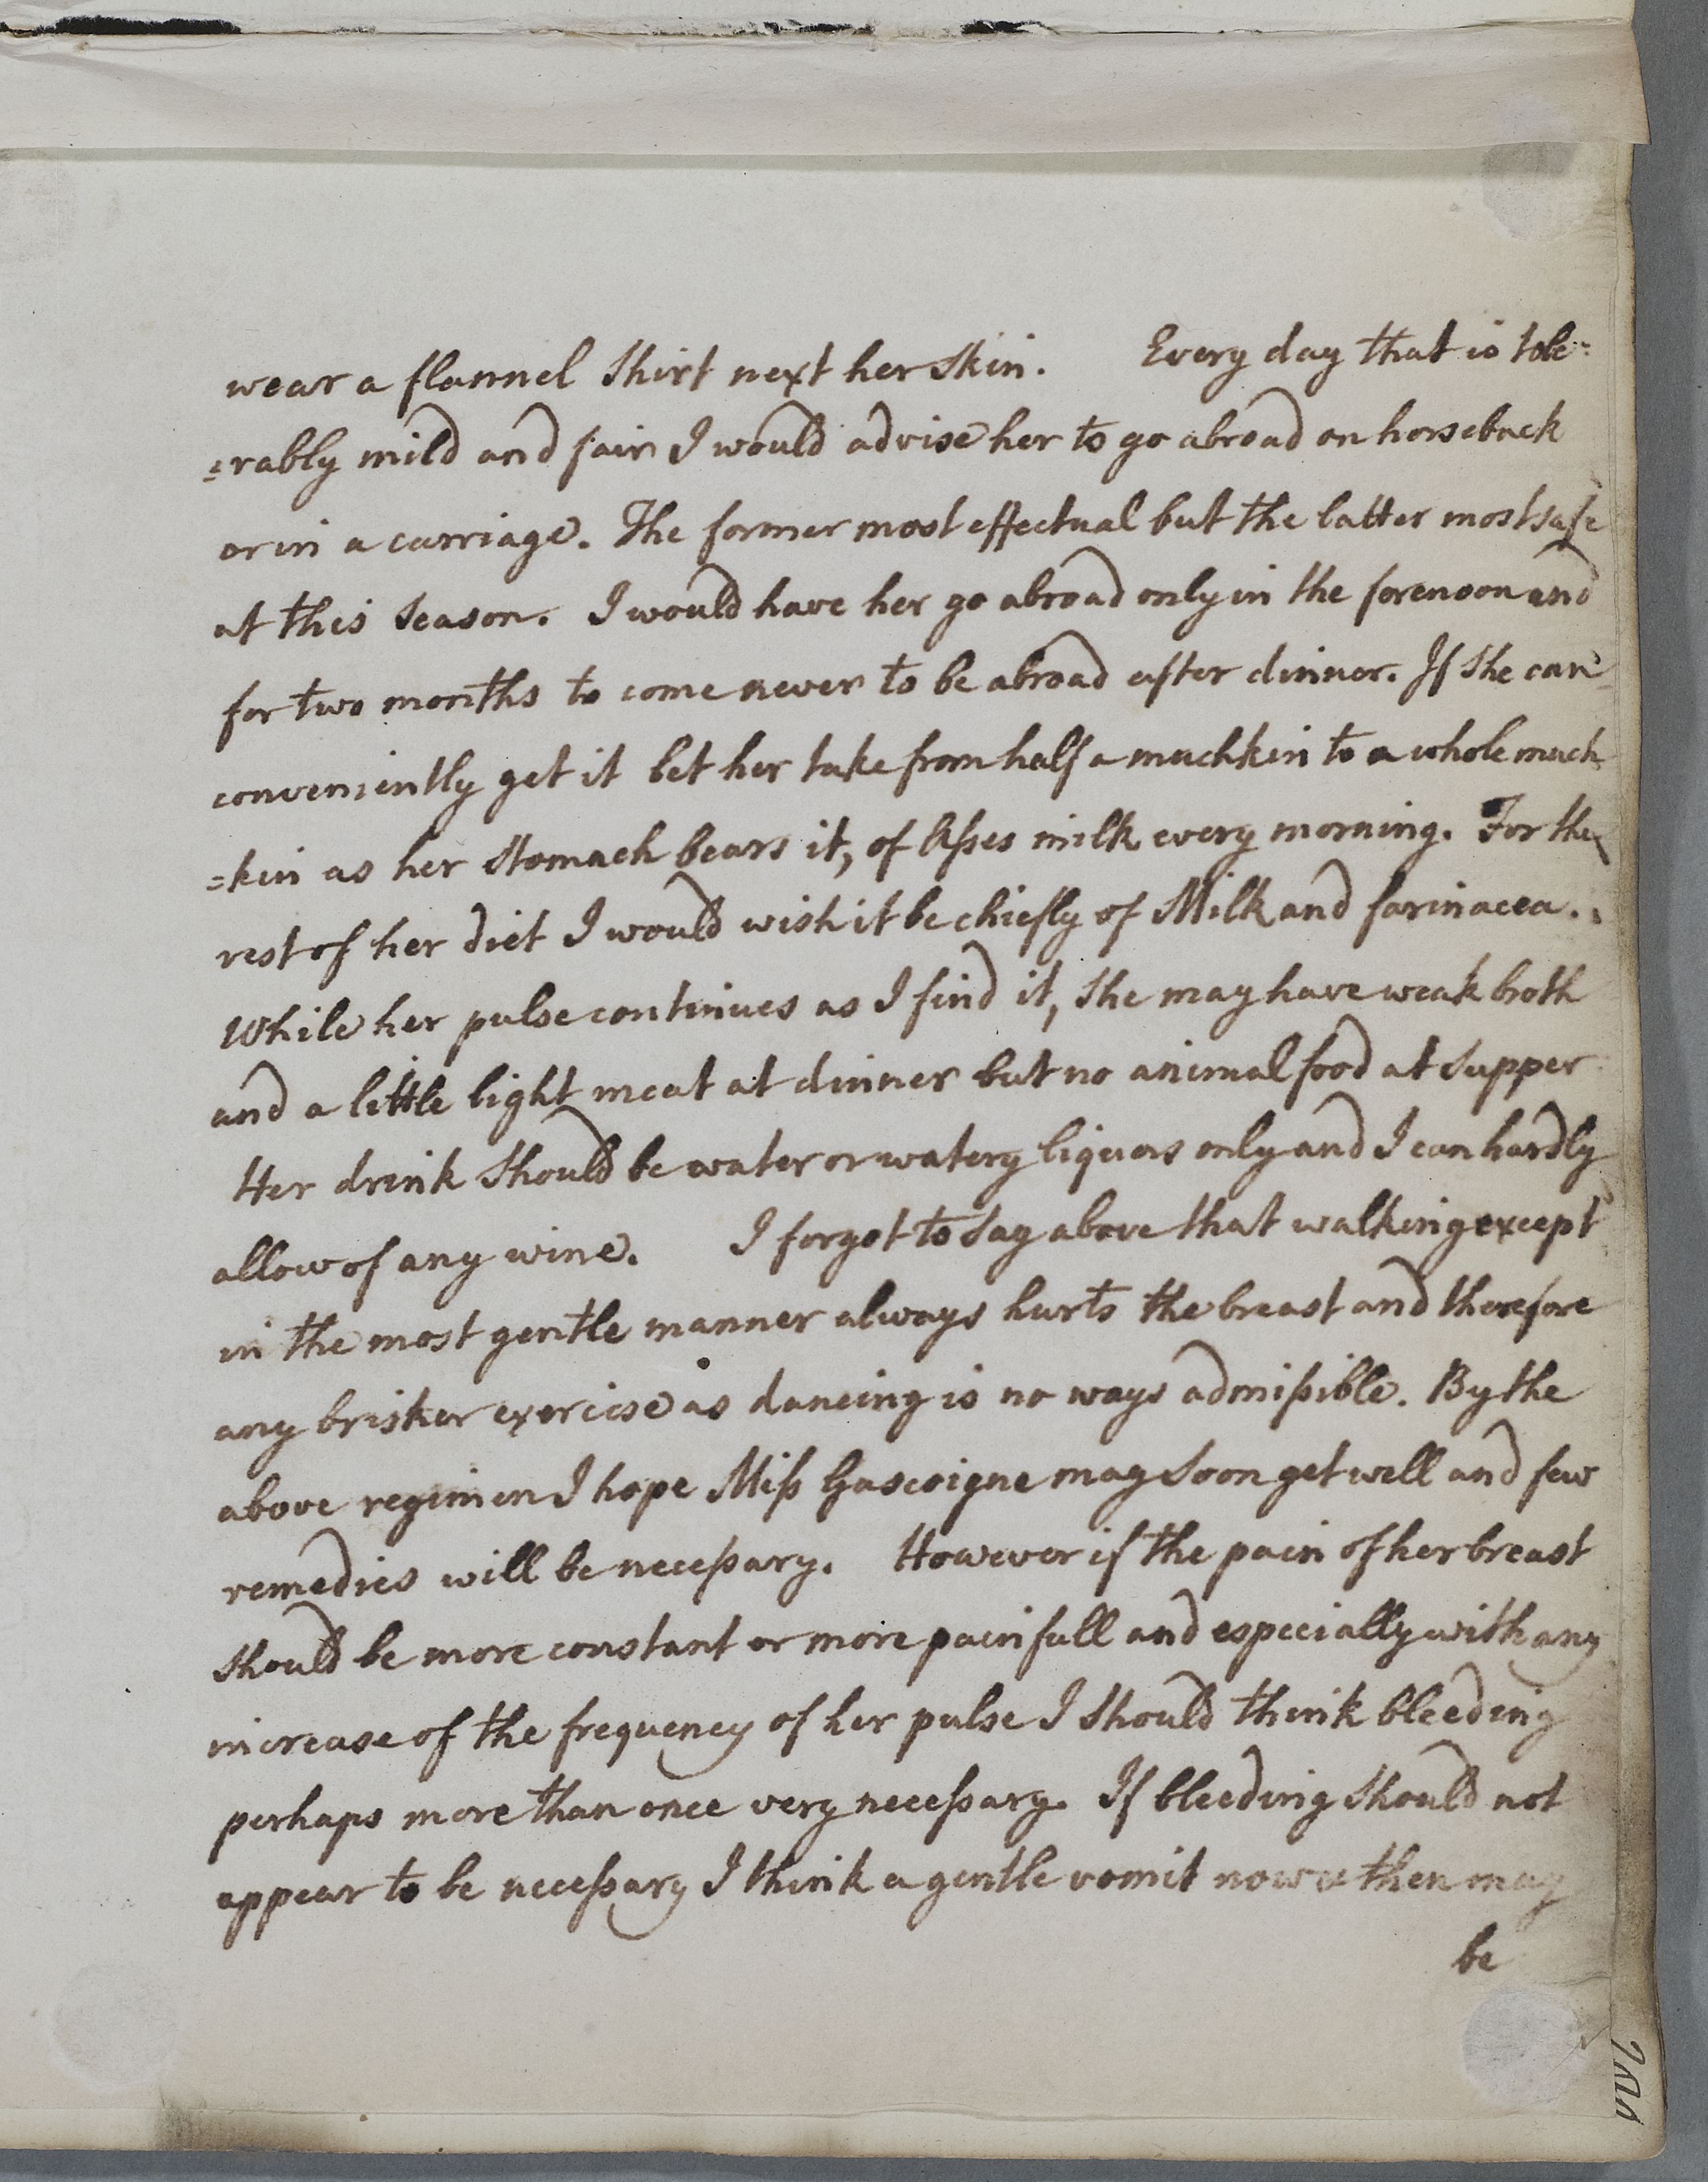 wear a flannel Shirt next her Skin. Every day that is tole=
=rably mild and fair I would advise her to go abroad on horseback
or in a carriage. The former most effectual but the latter most safe
at this Season. I would have her go abroad only in the forenoon and
for two months to come never to be abroad after dinner. If She can
conveniently get it let her take from half a muchkin to a whole much
=kin as her Stomach bears it, of Asses milk every morning. For the
rest of her diet I would wish it be chiefly of Milk and farinacea.
While her pulse continues as I find it, She may have weak broth
and a little light meat at dinner but no animal food at Supper
Her drink Should be water or watery liquors only and I can hardly
allow of any wine. I forgot to Say above that walking except
in the most gentle manner always hurts the breast and therefore
any brisker exercise as dancing is no ways admissible. By the
above regimen I hope Miss Gascoigne may Soon get well and few
remedies will be necessary. However if the pain of her breast
Should be more constant or more painfull and especially with any
increase of the frequency of her pulse I Should think bleeding
perhaps more than once very necessary. If bleeding Should not
appear to be necessary I think a gentle vomit now & then may
be